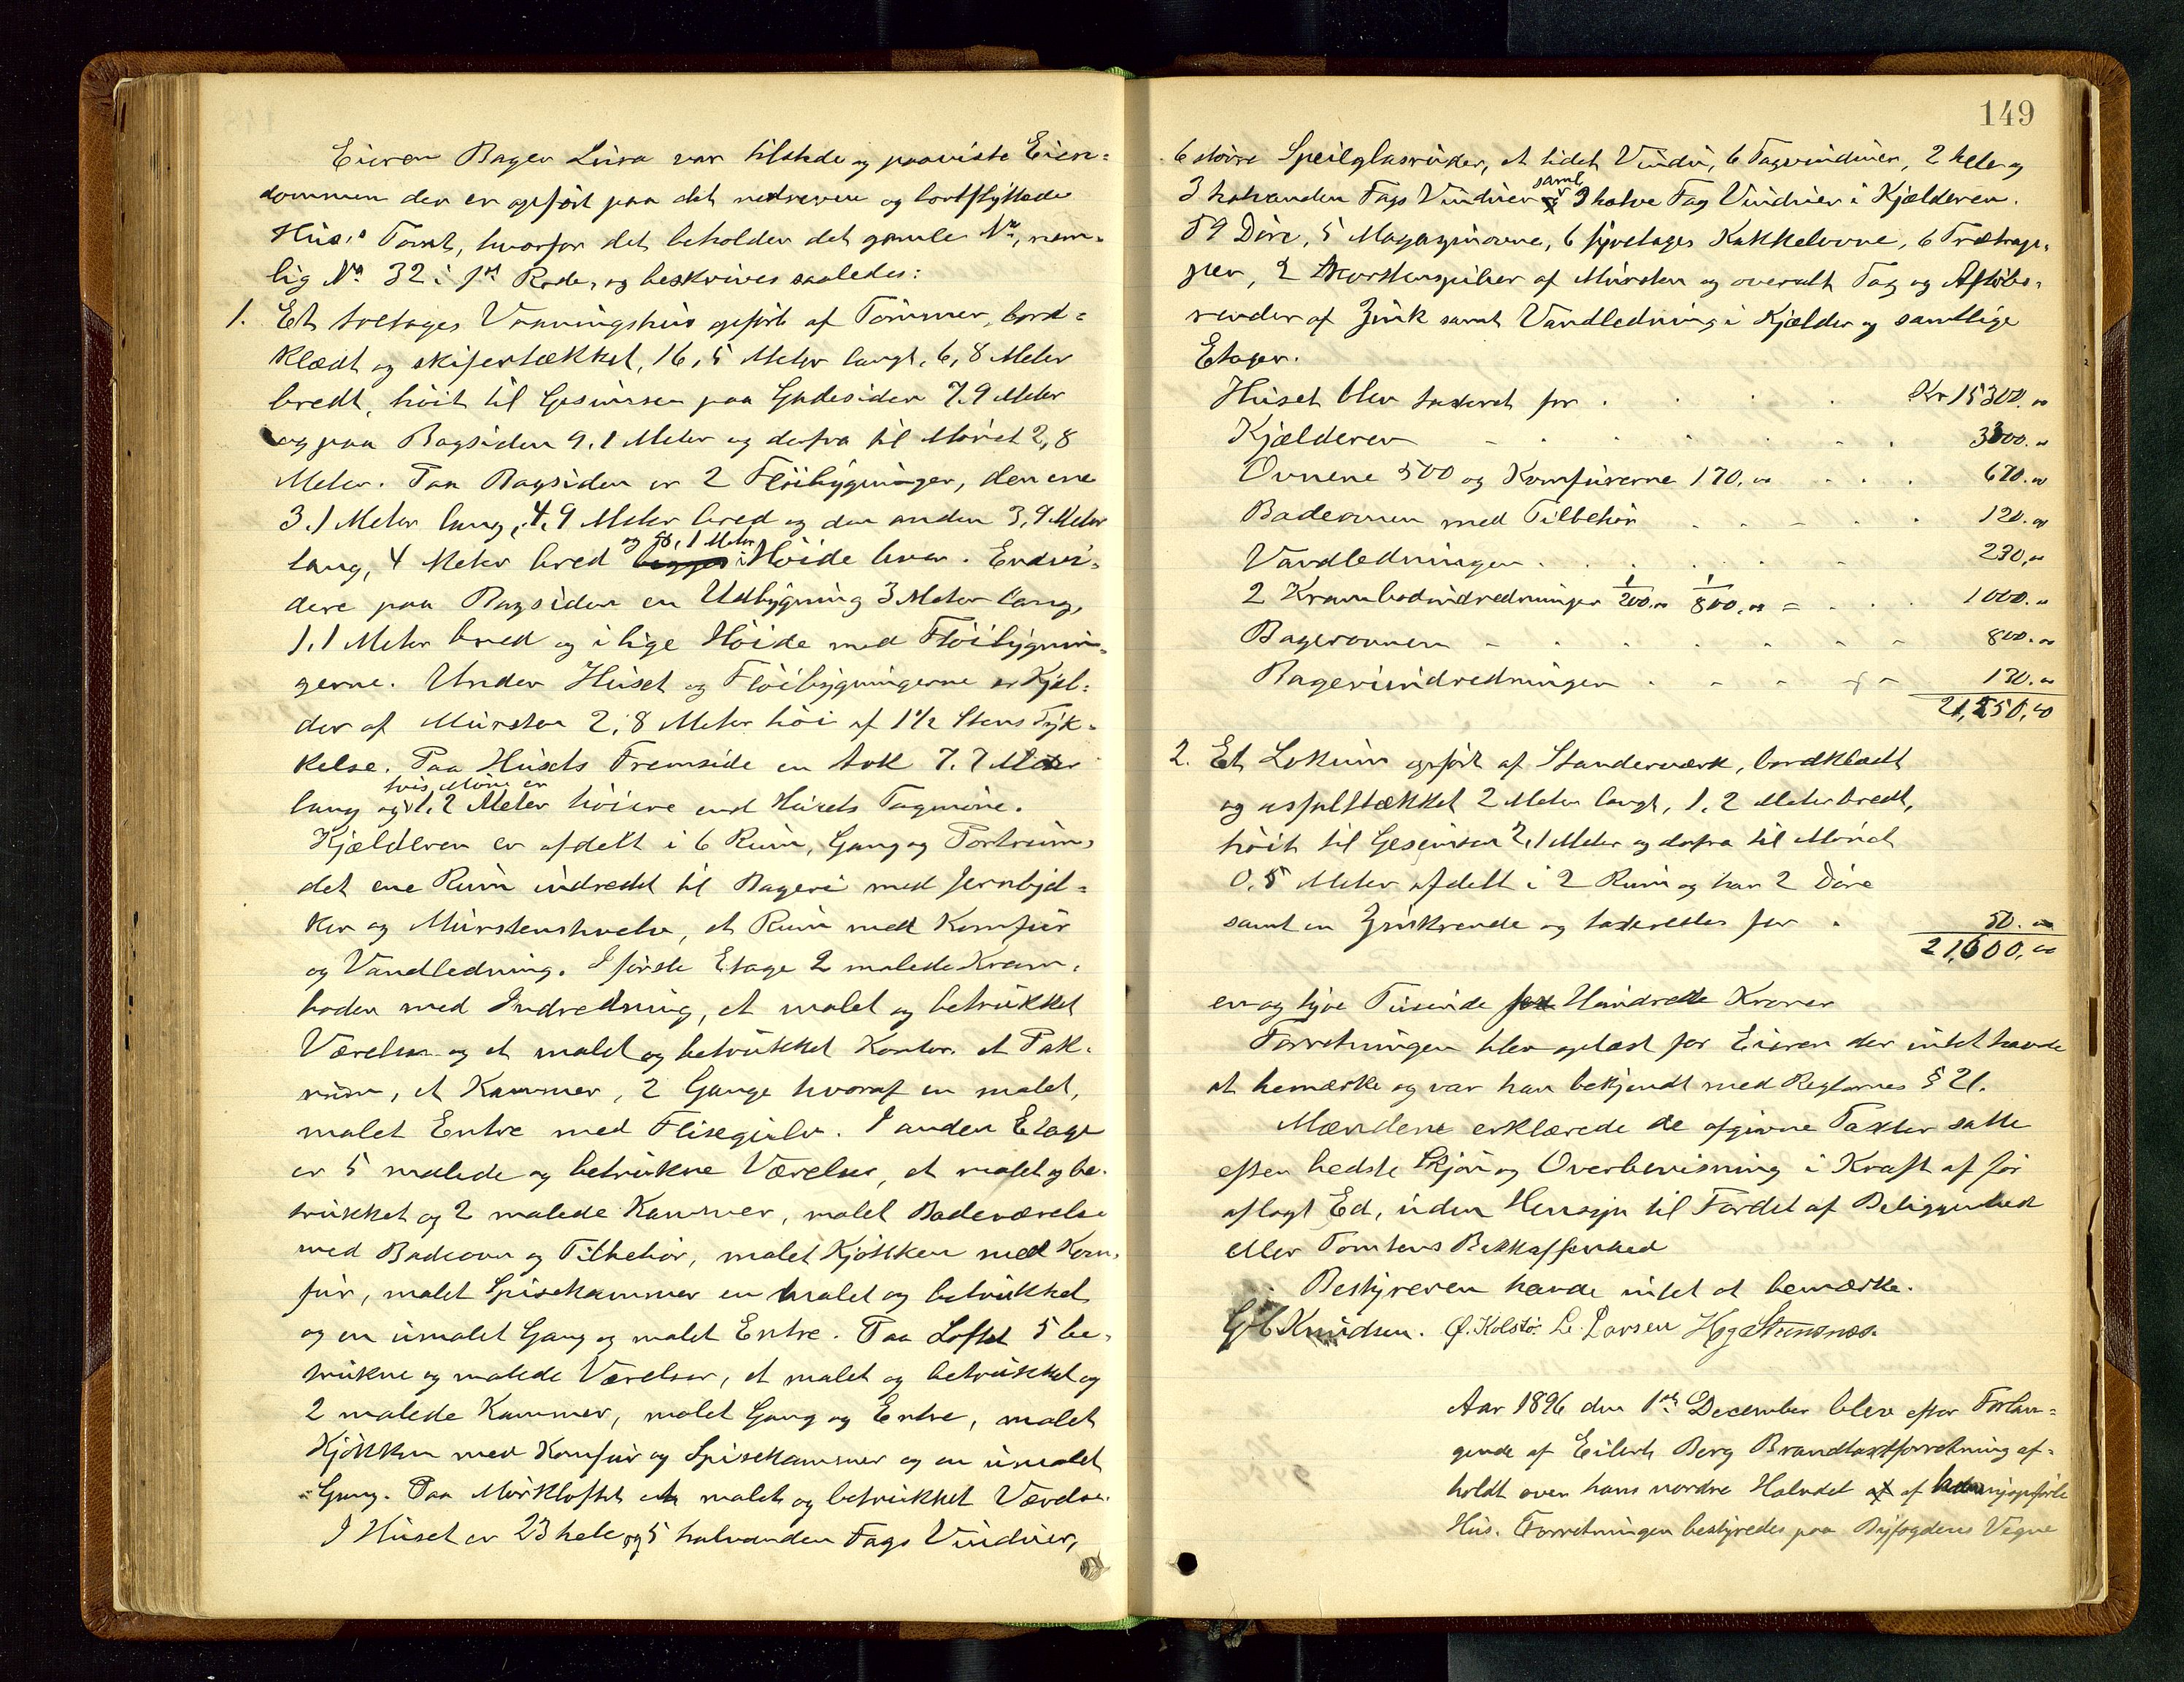 Eieren Bager Lura var tilstede og paaviste Eien-
dommen der er opført paa det nedrevne og bortflyttede
Hus's Tomt, hvorfor det beholder det gamle No, nem-
lig No 32 i 1ste Rode, og beskrives saaledes:
1. Et toetages Vaaningshus opført af Tømmer, bord-
klædt og skifertækket, 16,5 Meter langt, 6,8 Meter
bredt, høit til Gesimsen paa Gadesiden 7.9 Meter
og paa Bagsiden 9.1 Meter og derfra til Mønet 2,8
Meter. Paa Bagsiden er 2 Fløibygninger, den ene
3.1 Meter lang, 4.9 Meter bred og den anden 3,9 Meter
lang, 4 Meter bred og 8,1 Meter i Høide hver. Endvi-
dere paa Bagsiden en Udbygning 3 Meter lang,
1.1 Meter bred og i lige Høide med Fløibygnin-
gerne. Under Huset og Fløibygningerne er Kjæl-
der af Mursten 2,8 Meter høi af 1½ Stens Tyk-
kelse. Paa Husets Fremside en Ark 7.7 Meter
lang og hvis Møne er 1.2 Meter høiere end Husets Tagmøne.
Kjælderen er afdelt i 6 Rum, Gang og Portrum,
det ene Rum indredet til Bageri med Jernbjel-
ker og Murstenshvelv, et Rum med Komfur
og Vandledning. I første Etage 2 malede Kram-
boder med Indredning, et malet og betrukket
Værelse og et malet og betrukket Kontor, et Pak-
rum, et Kammer, 2 Gange hvoraf en malet,
malet Entre med Flisegulv. I anden Etage
er 5 malede og betrukne Værelser, et malet og be-
trukket og 2 malede Kammer, malet Badeværelse
med Badeovn og Tilbehør, malet Kjøkken med Kom-
fur, malet Spisekammer en malet og betrukket
og en umalet Gang og malet Entre. Paa Loftet 5 be-
trukne og malede Værelser, et malet og betrukket og
2 malede Kammer, malet Gang og Entre, malet
Kjøkken med Komfur og Spisekammer og en umalet
Gang. Paa Mørkloftet et malet og betrukket Værelse.
I Huset er 23 hele og 5 halvanden Fags Vinduer,
149
6 større Speilglasruder, et lidet Vindu, 6 Tagvinduer, 2 hele og
3 halvanden Fags Vinduer samt 3 halve Fag Vinduer i Kjælderen.
59 Døre, 5 Magasinovne, 6 fyretages Kakkelovne, 6 Trætrap-
per, 2 Skorstenspiber af Mursten og overalt Tag og Afløbs-
render af Zink samt Vandledning i Kjælder og samtlige
Etager.
Huset blev taxeret for . . . . Kr 15300.00
Kjælderen - . . . . . 3000.00
Ovnene 500 og Komfurerne 170.00 . . . 670.00
Badeovnen med Tilbehør . . . . . 120.00
Vandledningen . . . . . 230.00
2 Krambodindredninger 1/200.00 1/800.00 = . . . 1000.00
Bagerovnen - . . . . . 800.00
Bageriindredningen . . . . 130.00
21,250,00
2. Et Lokum opført af Standerværk, bordklædt
og asfalttækket 2 Meter langt, 1.2 Meter bredt,
høit til Gesimsen 2,1 Meter og derfra til Mønet
0,5 Meter afdelt i 2 Rum og har 2 Døre
samt en Zinkrende og taxeredes for . 50.00
21,600,00
en og tyve Tusinde Hundrede Kroner
Forretningen blev oplæst for Eieren der intet havde
at bemærke og var han bekjendt med Reglernes § 21.
Mændene erklærede de afgivne Taxter satte
efter bedste Skjøn og Overbevisning i Kraft af før
aflagt Ed, uden Hensyn til Fordel af Beliggenhed
eller Tomtens Beskaffenhed
Bestyreren havde intet at bemærke.
Knudsen. O. Kolstø. L. Larsen
Aar 1896 den 1ste December blev efter Forlan-
gende af Eilert Berg Brandtaxtforretning af-
holdt over hans nordre Halvdel af nyopførte
Hus. Forretningen bestyredes paa Byfogdens Vegne